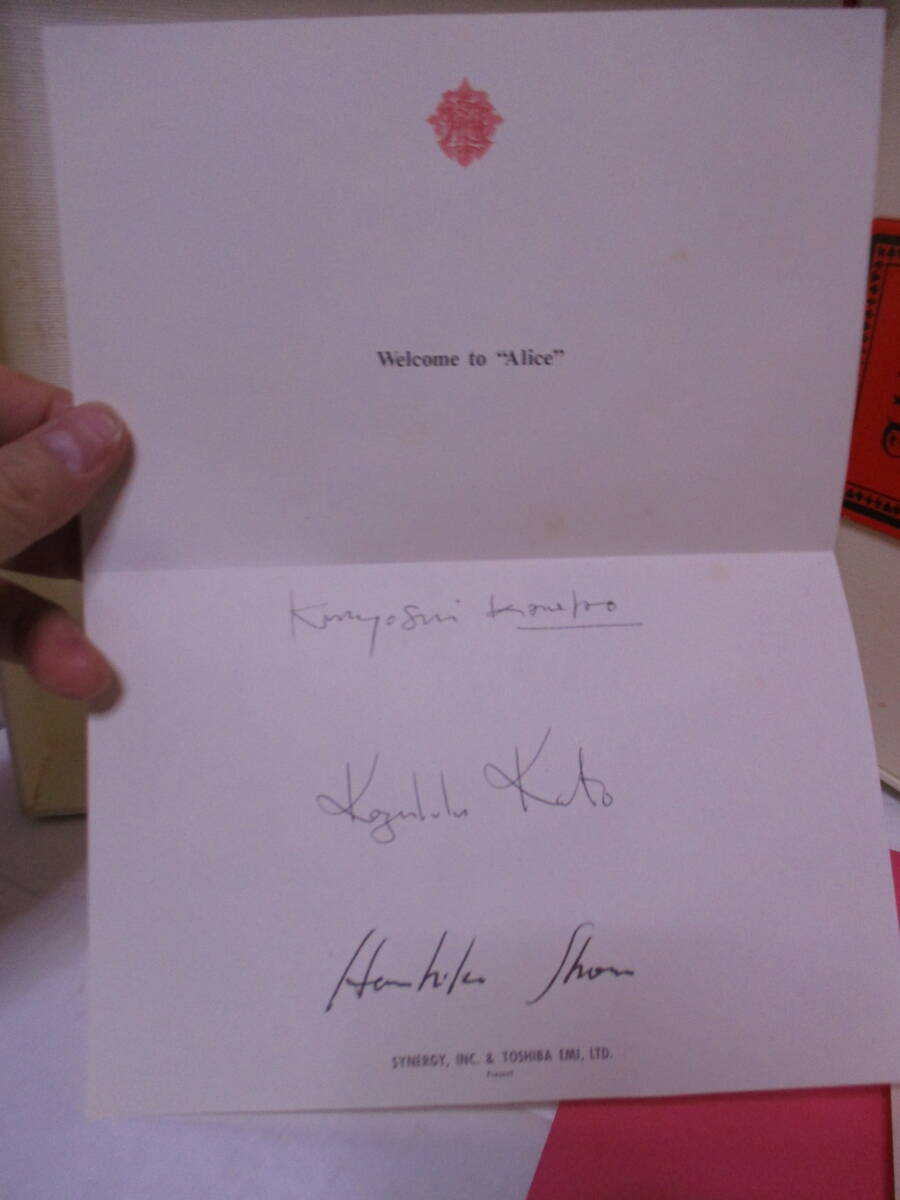 Welcome to "Alice"
Kuniyoshi Kaneko
Kazuhiko Kato
Haruhiko Shono
SYNERGY, INC. & TOSHIBA EMI, LTD.
Present